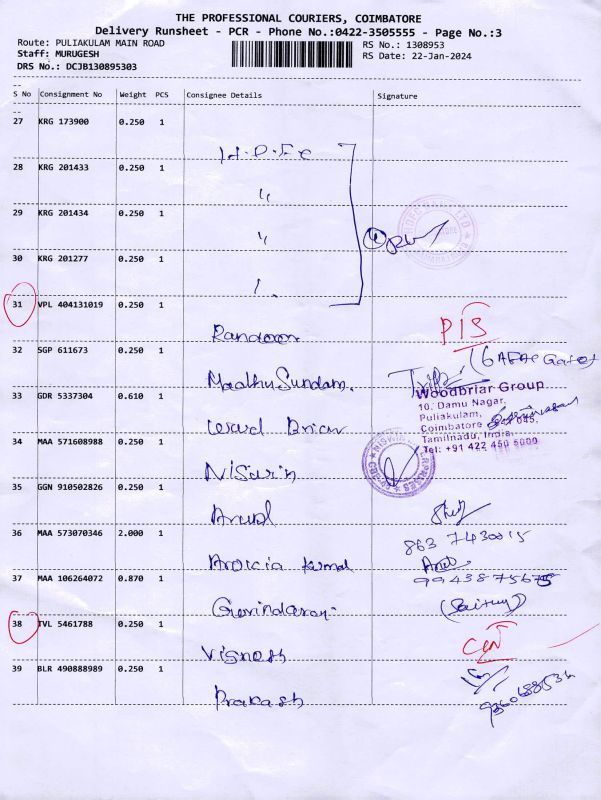 THE PROFESSIONAL COURIERS, COIMBATORE
Delivery Runsheet - PCR - Phone No.:0422-3505555 - Page No.:3
Route: PULIAKULAM MAIN ROAD
Staff: MURUGESH
DRS No.: DCJB130895303
RS No.: 1308953
RS Date: 22-Jan-2024
S No Consignment No Weight PCS Consignee Details Signature
27 KRG 173900 0.250 1
H.D.F.C
28 KRG 201433 0.250 1
29 KRG 201434 0.250 1
30 KRG 201277 0.250 1
31 VPL 404131019 0.250 1
PIS
32 SGP 611673 0.250 1
Madhu Sundam.
33 GDR 5337304 0.610 1
Woodbriar Group
10. Damu Nagar,
Puliakulam,
Coimbatore 045,
Tamilnadu, India.
Tel: +91 422 450 5000
34 MAA 571608988 0.250 1
35 GGN 910502826 0.250 1
36 MAA 573070346 2.000 1
863 7430015
Kumal
37 MAA 106264072 0.870 1
Govindaraj
38 TVL 5461788 0.250 1
39 BLR 490888989 0.250 1
Prakash